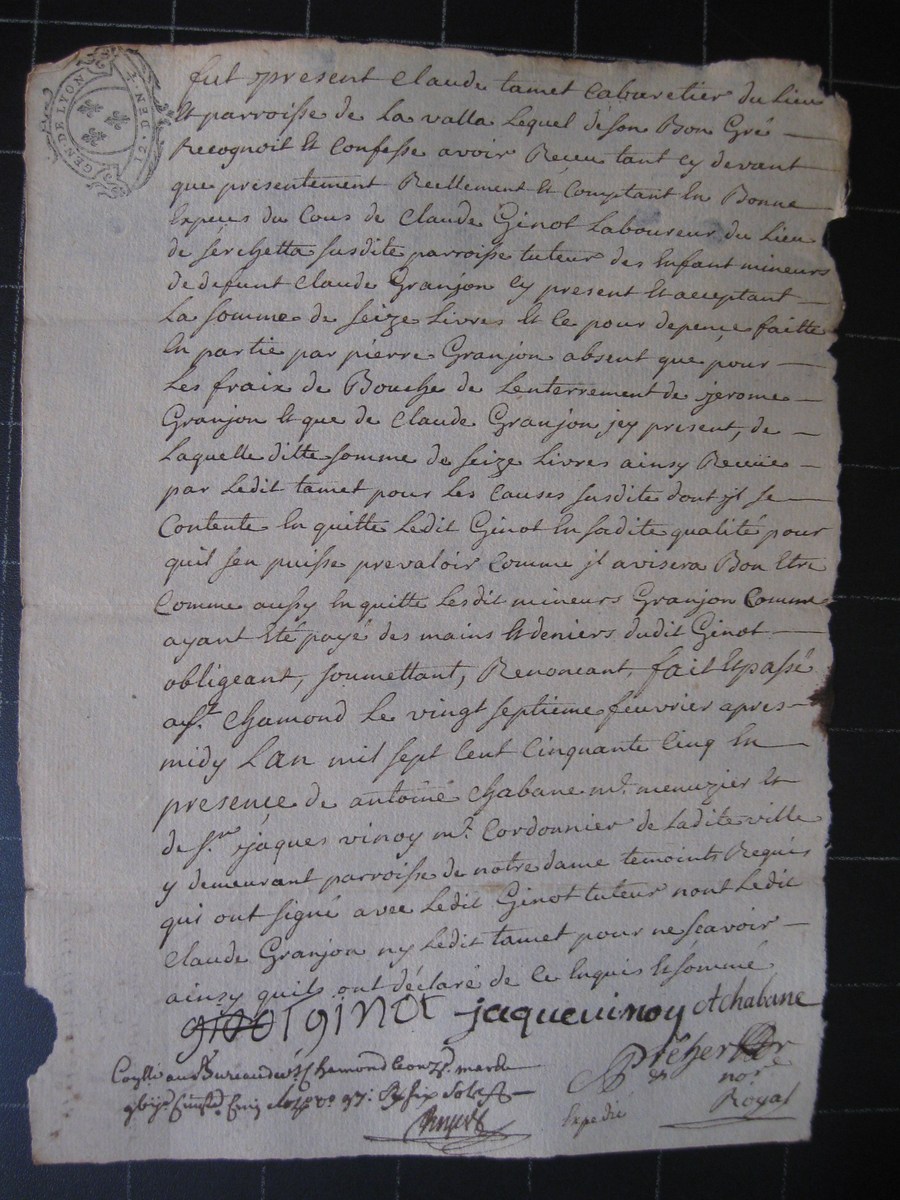 GEN. DE LYON
12. DEN. T.
fut present Claude tamet Cabaretier du Lieu
Et parroisse de La valla Lequel de son Bon Gré
Recognoit Et Confesse avoir Receu tant Cy devant
que presentement Reellement Et Comptant En Bonne
Especes du Cours de Claude Ginot Laboureur du Lieu
de serchetta susdite parroisse tuteur des Enfant mineurs
de defunt Claude Granjon Cy present Et acceptant
La somme de seize Livres Et Ce pour depençe faitte
En partie par pierre Granjon absent que pour
Les fraix de Bouche de Lenterrement de jerome
Granjon Et que de Claude Granjon jcy present, de
Laquelle ditte somme de seize Livres ainsy Receüe
par Ledit tamet pour Les Causes susdite dont jl se
Contente En quitte Ledit Ginot En sadite qualité pour
quil sen puisse prevaloir Comme jl avisera Bon Etre
Comme aussy En quitte Lesdit mineurs Granjon Comme
ayant Eté payé des mains Et deniers dudit Ginot
obligeant, soumettant, Renoncant, fait Et passé
a St. Chamond Le vingt septieme feuvrier apres
midy Lan mil sept Cent Cinquante Cinq En
presence de antoine Chabane me. menuzier Et
de sr. jaques vinoy me. Cordonnier de Ladite ville
y demeurant parroisse de notre dame temoints Requis
qui ont signé avec Ledit Ginot tuteur nont Ledit
Claude Granjon ny Ledit tamet pour ne scavoir
ainsy quils ont déclaré de Ce Enquis Et sommé
ginot jaque vinoy A chabane
au Bureau de St Chamond Le onze mars
six sols
nore.
Royal
Expedié